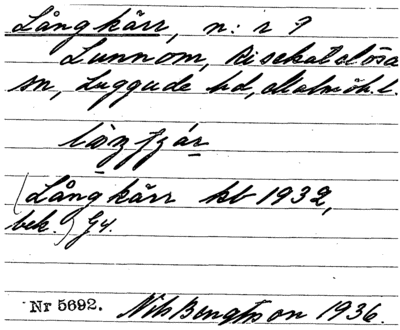 Långkärr, n: r ?
Lunnom, Risekatslösa
sn, Luggude hd, Malmöh. l.
(Långkärr kb 1932,
bek.) Gy.
Nr 5692. Nils Bengtsson 1936.